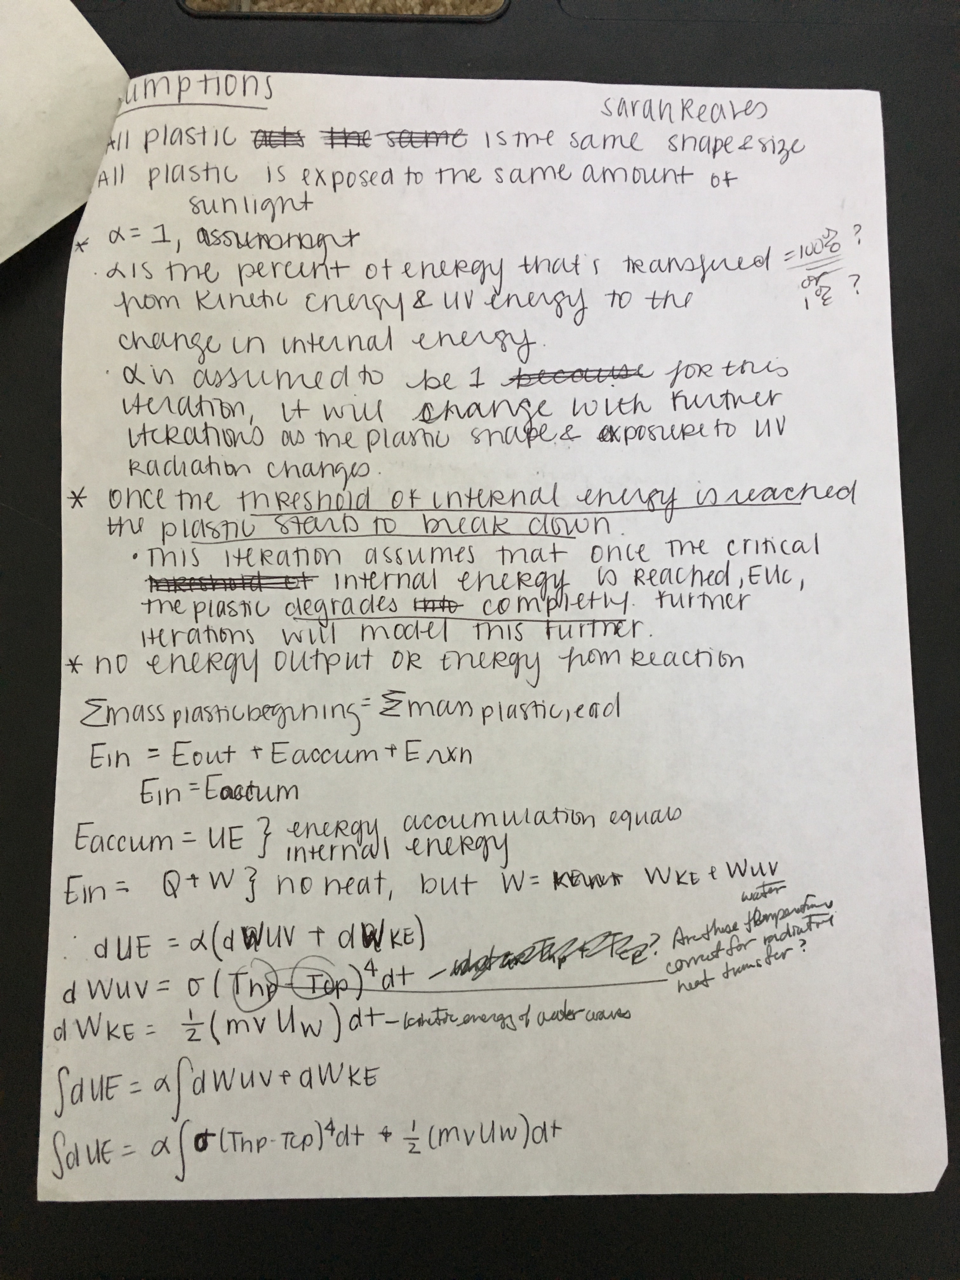 umptions
Sarah Reaves
All plastic acts the same is the same shape & size
All plastic is exposed to the same amount of
sunlight
* α = 1,
· α is the percent of energy that's transfured = 100% ?
from kinetic energy & UV energy to the or 1% ?
change in internal energy.
· α is assumed to be 1 because for this
iteration, it will change with further
iterations as the plastic shape & exposure to UV
radiation changes.
* once the threshold of internal energy is reached
the plastic starts to break down.
· This iteration assumes that once the critical
threshold of internal energy is reached, EUc,
the plastic degrades into completly. further
iterations will model this further.
* no energy output or energy from reaction
Σmass plastic beginning = Σmass plastic, end
Ein = Eout + Eaccum + Erxn
Ein = Eaccum
Eaccum = UE } energy accumulation equals
internal energy
Ein = Q + W } no heat, but W = WKE + WUV
water
∴ dUE = α(dWUV + dWKE)
Are these temperatures
correct for radiative
heat transfer?
dWUV = σ(Thp - Tcp)⁴dt -
dWKE = ½(mvUw)dt - kinetic energy of water waves
∫dUE = α∫dWUV + dWKE
∫dUE = α∫σ(Thp-Tcp)⁴dt + ½(mvUw)dt